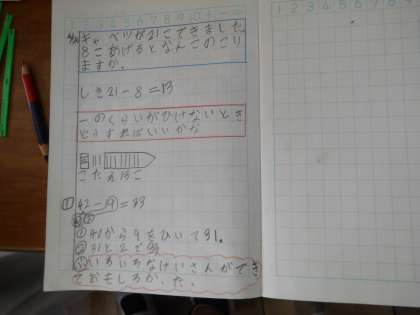 1 2 3 4 5 6 7 8 9 10
キャベツが21こできました
8こあげるとなんこのこり
ますか。
しき21-8=13
一のくらいがひけないとき
どうすればいいかな
こたえ13こ
1 42-9=33
①40から9をひいて31。
②31と2で33
③いろいろなけいさんができ
ておもしろかった。
1 2 3 4 5 6 7 8 9